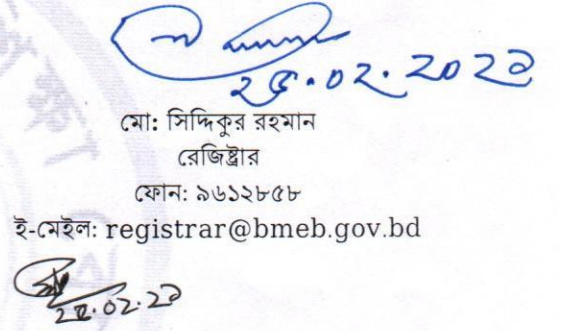 ২৫.০২.২০২১
মো: সিদ্দিকুর রহমান
রেজিষ্ট্রার
ফোন: ৯৬১২৮৫৮
ই-মেইল: registrar@bmeb.gov.bd
২৫.০২.২১